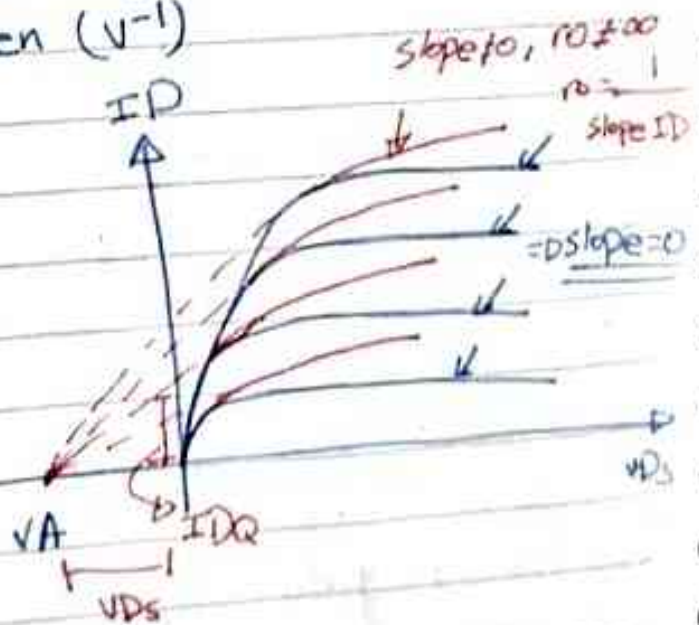 en (V⁻¹)
slope≠0, ro≠∞
ro = 1
slope ID
ID
=D slope=0
VDs
VA
IDQ
VDs